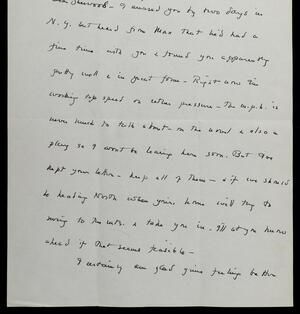 Dear Sherwood - I missed you by two days in
N.Y. but heard from Max that he'd had a
fine time with you & found you apparently
pretty well & in great form - Right now I'm
working top speed on rather pressure - The
never much to talk about - on the novel & also a
play so I wont be leaving here soon. But I've
kept your letters - keep all of them - & if we should
be heading North when you're home will try to
swing to the mts. & take you in. I'll let you know
ahead if that seems feasible -
I certainly am glad you're feeling better